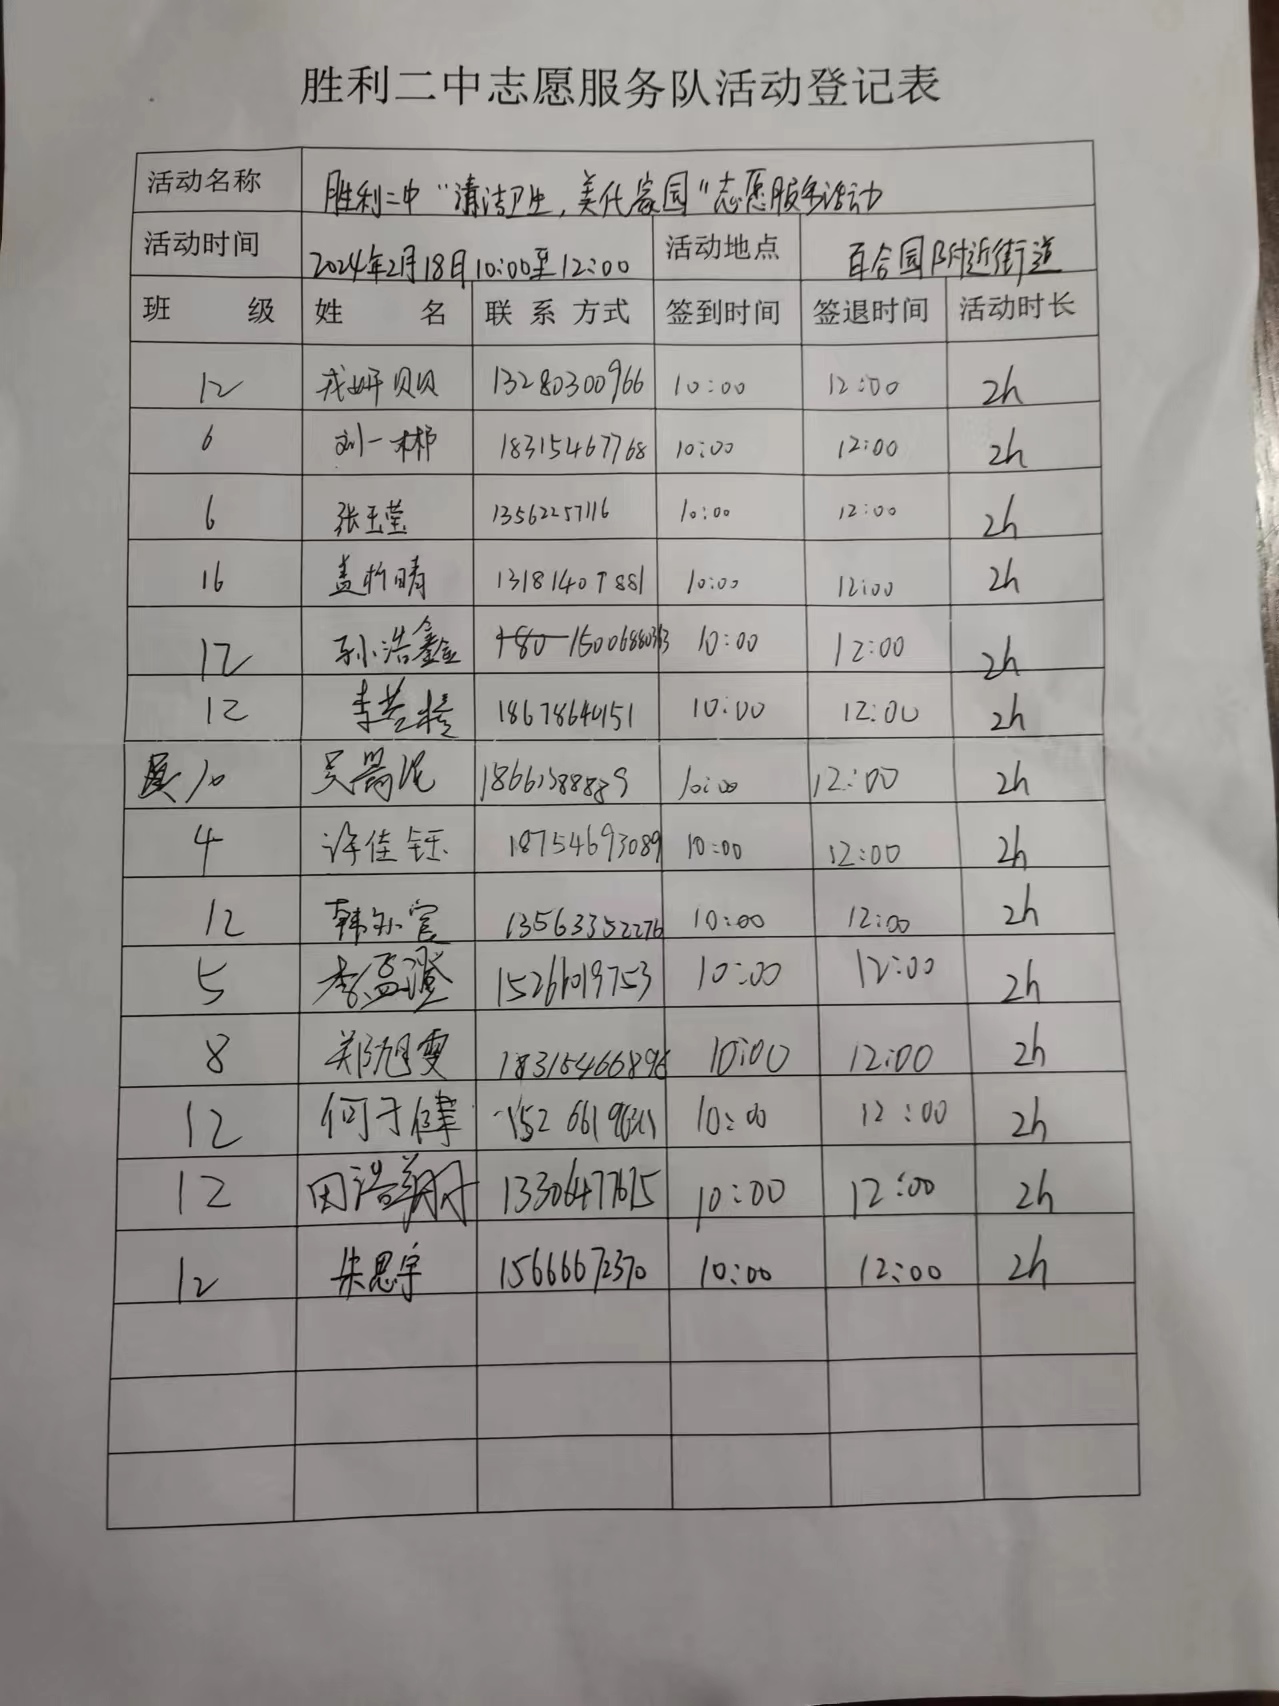 胜利二中志愿服务队活动登记表
活动名称 胜利二中“清洁卫生，美化家园”志愿服务活动
活动时间 2024年2月18日10:00至12:00 活动地点 百合园附近街道
班 级 姓 名 联系方式 签到时间 签退时间 活动时长
12 戎妍贝贝 13280300966 10:00 12:00 2h
6 刘一 18315467768 10:00 12:00 2h
6 张玉莹 13562257116 10:00 12:00 2h
16 盖 晴 13181407881 10:00 12:00 2h
12 孙浩鑫 10:00 12:00 2h
12 李 18678640151 10:00 12:00 2h
10 吴 10:00 12:00 2h
4 许佳钰 18754693089 10:00 12:00 2h
12 韩 13563352276 10:00 12:00 2h
5 李孟澄 10:00 12:00 2h
8 郑旭雯 18315466896 10:00 12:00 2h
12 何于健 10:00 12:00 2h
12 田浩翔 13306477615 10:00 12:00 2h
12 朱思宇 15666672370 10:00 12:00 2h